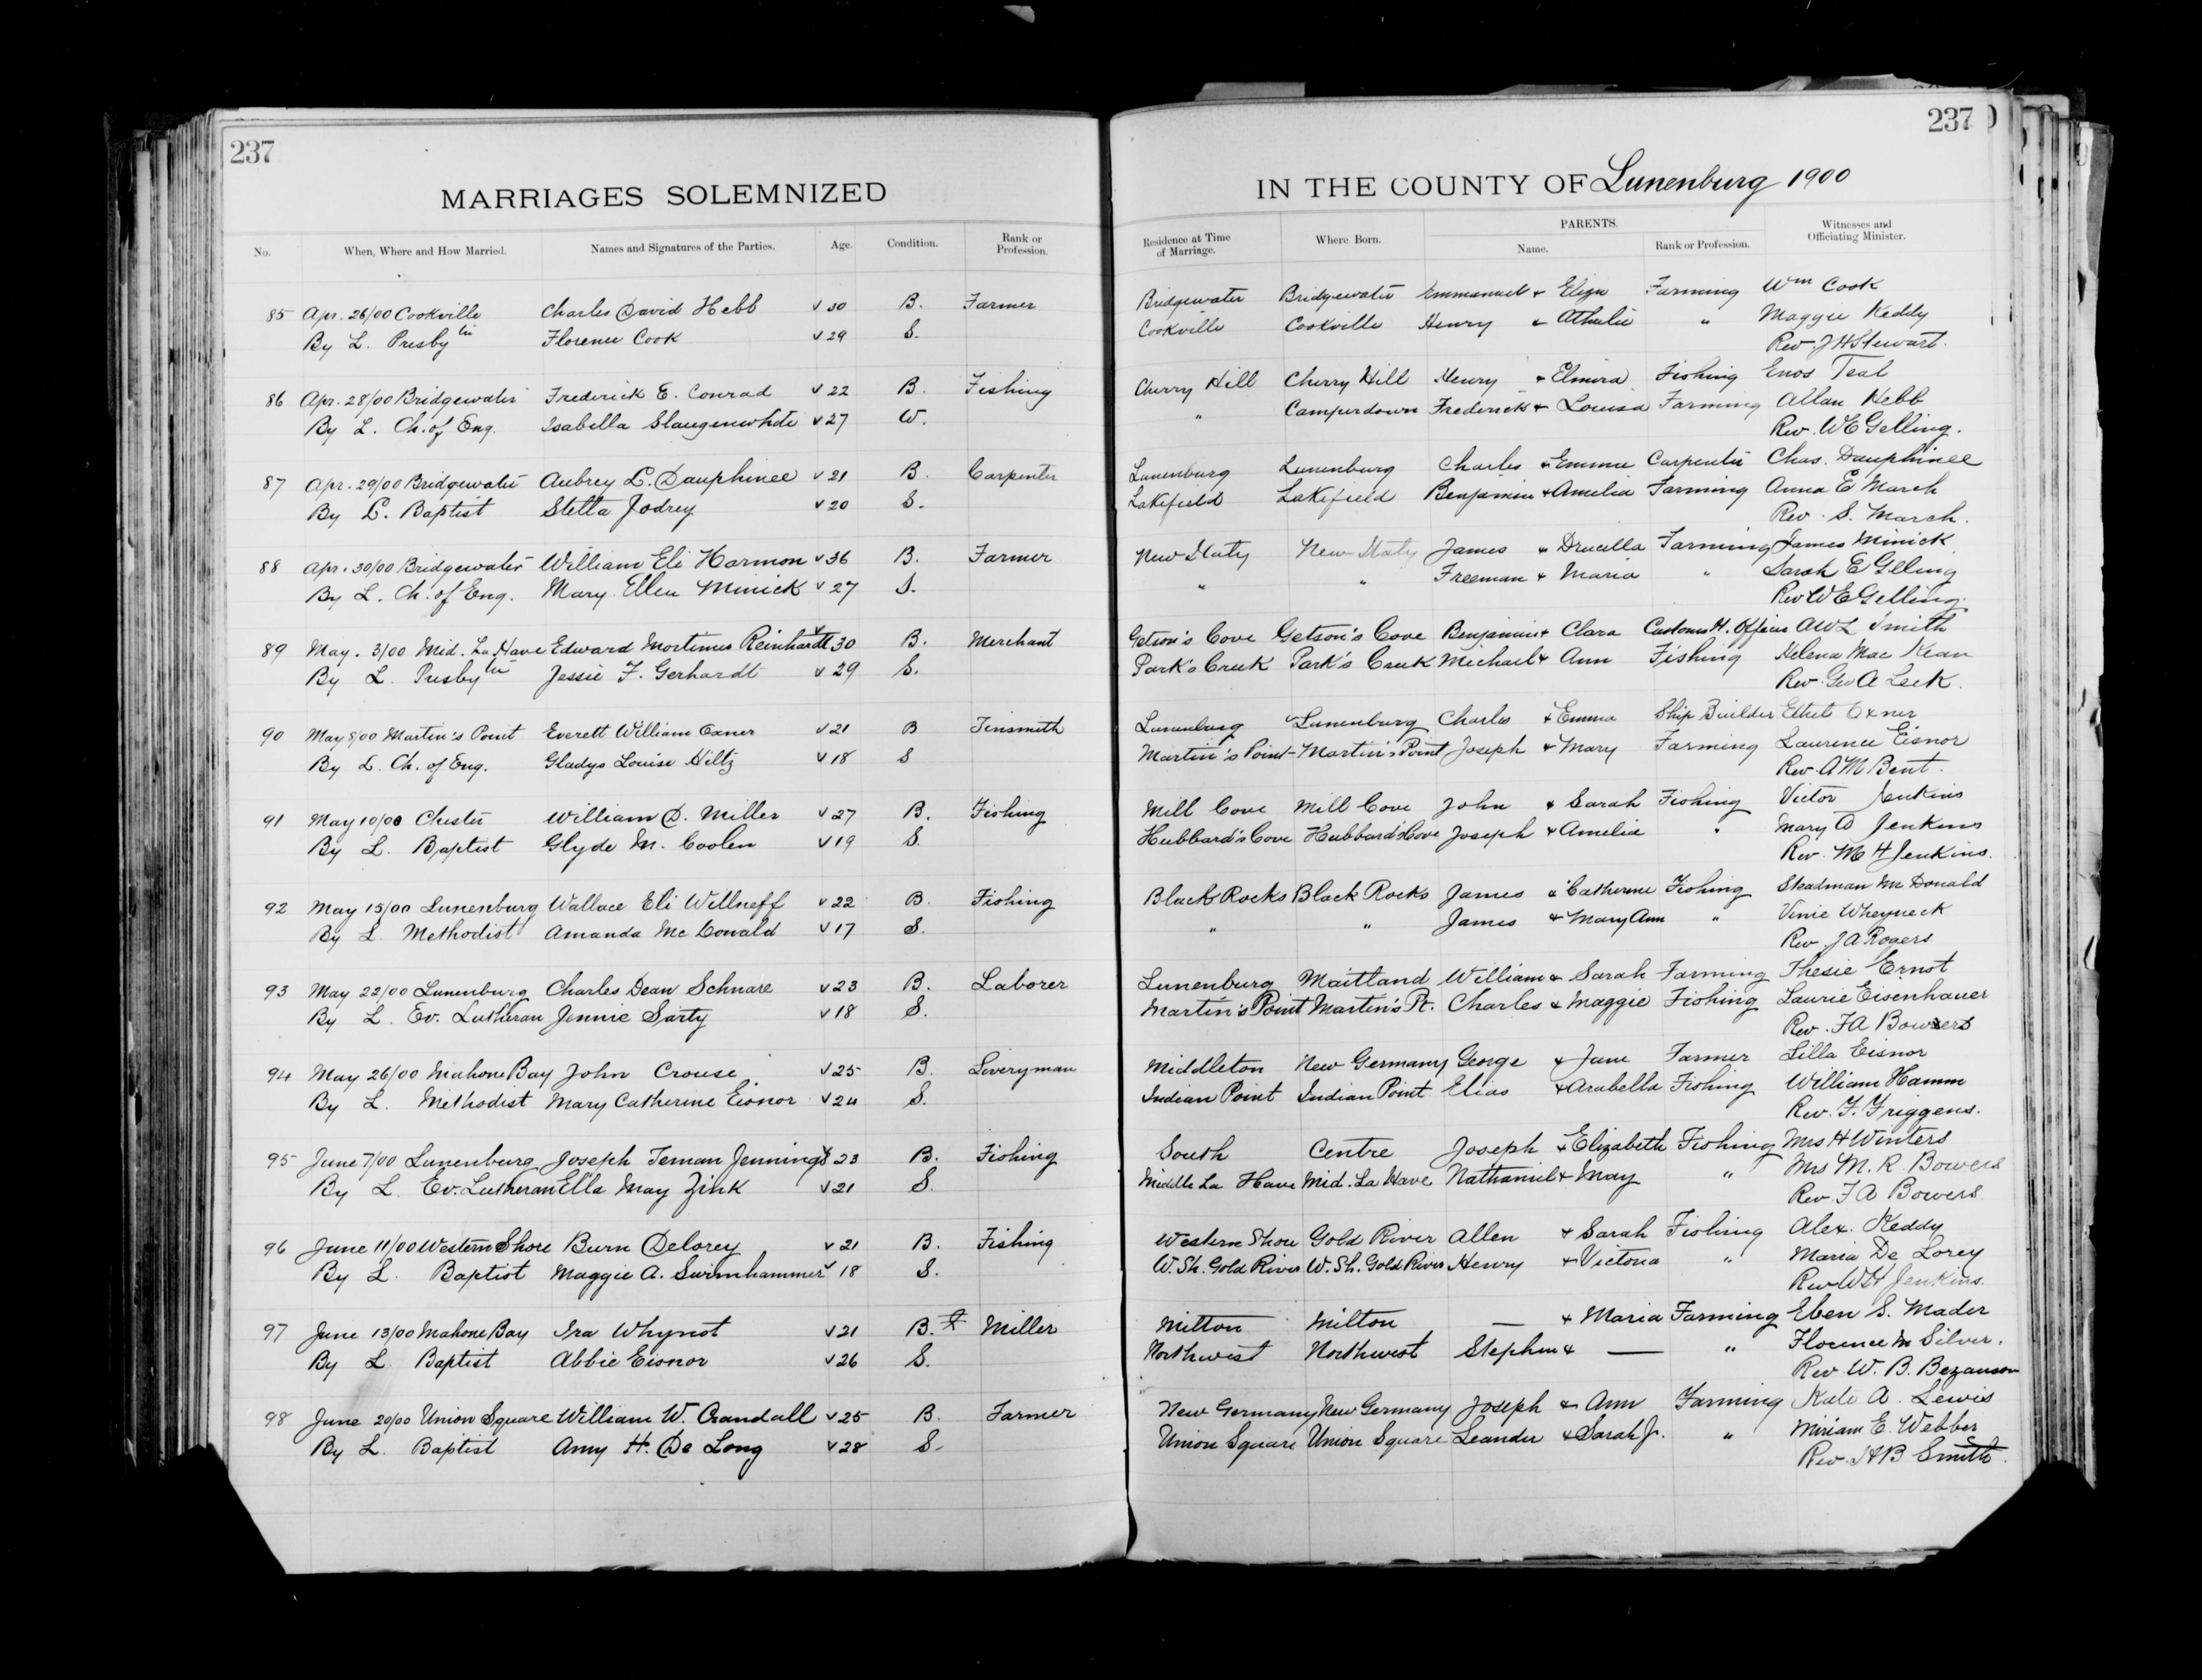 237
237
MARRIAGES SOLEMNIZED
IN THE COUNTY OF Lunenburg 1900
No. When, Where and How Married. Names and Signatures of the Parties. Age. Condition. Rank or Profession. Residence at Time of Marriage. Where Born. PARENTS. Name. Rank or Profession. Witnesses and Officiating Minister.
85 Apr. 26/00 Cookville Charles David Hebb √ 30 B. Farmer Bridgewater Bridgewater Emmanuel & Eliza Farming Wm Cook
By L. Presbytn Florence Cook √ 29 S. Cookville Cookville Henry & Athalie " Maggie Keddy
Rev. J H Stewart.
86 Apr. 28/00 Bridgewater Frederick E. Conrad √ 22 B. Fishing Cherry Hill Cherry Hill Henry & Elmira Fishing Enos Teal
By L. Ch. of Eng. Isabella Slaugenwhite √ 27 W. " Camperdown Frederick & Louisa Farming Allan Hebb
Rev. W E Gelling.
87 Apr. 29/00 Bridgewater Aubrey L. Dauphinee √ 21 B. Carpenter Lunenburg Lunenburg Charles & Emma Carpenter Chas. Dauphinee
By L. Baptist Stella Jodrey √ 20 S. Lakefield Lakefield Benjamin & Amelia Farming Anna E March
Rev. S. March.
88 Apr. 30/00 Bridgewater William Eli Harmon √ 36 B. Farmer New Italy New Italy James & Drucilla Farming James Minick
By L. Ch. of Eng. Mary Ellen Minick √ 27 S. " " Freeman & Maria " Sarah E Gelling
Rev W E Gelling.
89 May. 3/00 Mid. La Have Edward Mortimer Reinhardt √ 30 B. Merchant Getson's Cove Getson's Cove Benjamin & Clara Customs H. Officer A W L Smith
By L. Presbytn Jessie F. Gerhardt √ 29 S. Park's Creek Park's Creek Michael & Ann Fishing Helena Mac Kean
Rev. Geo A Leck.
90 May 8/00 Martin's Point Everett William Exner √ 21 B Tinsmith Lunenburg Lunenburg Charles & Emma Ship Builder Ethel Exner
By L. Ch. of Eng. Gladys Louise Hiltz √ 18 S Martin's Point Martin's Point Joseph & Mary Farming Laurence Eisnor
Rev. A M Bent.
91 May 10/00 Chester William D. Miller √ 27 B. Fishing Mill Cove Mill Cove John & Sarah Fishing Victor Jenkins
By L. Baptist Glyde M. Coolen √ 19 S. Hubbard's Cove Hubbard's Cove Joseph & Amelia " Mary A Jenkins
Rev. M H Jenkins.
92 May 15/00 Lunenburg Wallace Eli Willneff √ 22 B. Fishing Black Rocks Black Rocks James & Catherine Fishing Steadman Mc Donald
By L Methodist Amanda Mc Donald √ 17 S. " " James & Mary Ann " Vinie Wheyneck
Rev J A Rogers
93 May 22/00 Lunenburg Charles Dean Schnare √ 23 B. Laborer Lunenburg Maitland William & Sarah Farming Thesie Ernst
By L. Ev. Lutheran Jennie Sarty √ 18 S. Martin's Point Martin's Pt. Charles & Maggie Fishing Laurie Eisenhauer
Rev. F A Bowers
94 May 26/00 Mahone Bay John Crouse √ 25 B. Liveryman Middleton New Germany George & Jane Farmer Lilla Eisnor
By L. Methodist Mary Catherine Eisnor √ 24 S. Indian Point Indian Point Elias & Arabella Fishing William Hamm
Rev. F. Friggens.
95 June 7/00 Lunenburg Joseph Teman Jennings √ 23 B. Fishing South Centre Joseph & Elizabeth Fishing Mrs H Winters
By L Ev. Lutheran Ella May Zink √ 21 S. Middle La Have Mid. La Have Nathaniel & May " Mrs M. R. Bowers
Rev. F A Bowers.
96 June 11/00 Western Shore Burn Delorey √ 21 B. Fishing Western Shore Gold River Allen & Sarah Fishing Alex. Keddy
By L. Baptist Maggie A. Swimhammer √ 18 S. W. Sh. Gold River W. Sh. Gold River Henry & Victoria " Maria De Lorey
Rev W H Jenkins.
97 June 13/00 Mahone Bay Ira Whynot √ 21 B. Miller Milton Milton — & Maria Farming Eben S. Mader
By L. Baptist Abbie Eisnor √ 26 S. Northwest Northwest Stephen & — " Florence M Silver.
Rev W. B. Bezanson
98 June 20/00 Union Square William W. Crandall √ 25 B. Farmer New Germany New Germany Joseph & Ann Farming Kate A. Lewis
By L. Baptist Amy H. De Long √ 28 S. Union Square Union Square Leander & Sarah J. " Miriam E. Webber
Rev. H B Smith.